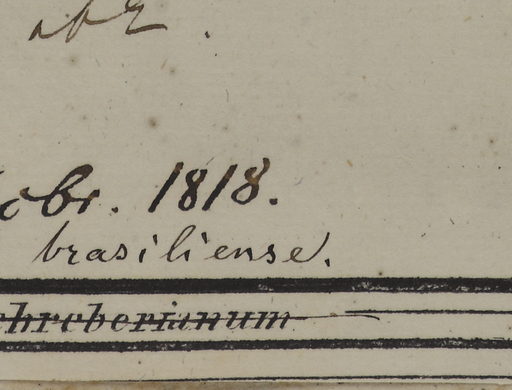 cbr. 1818.
brasiliense.
chreberianum